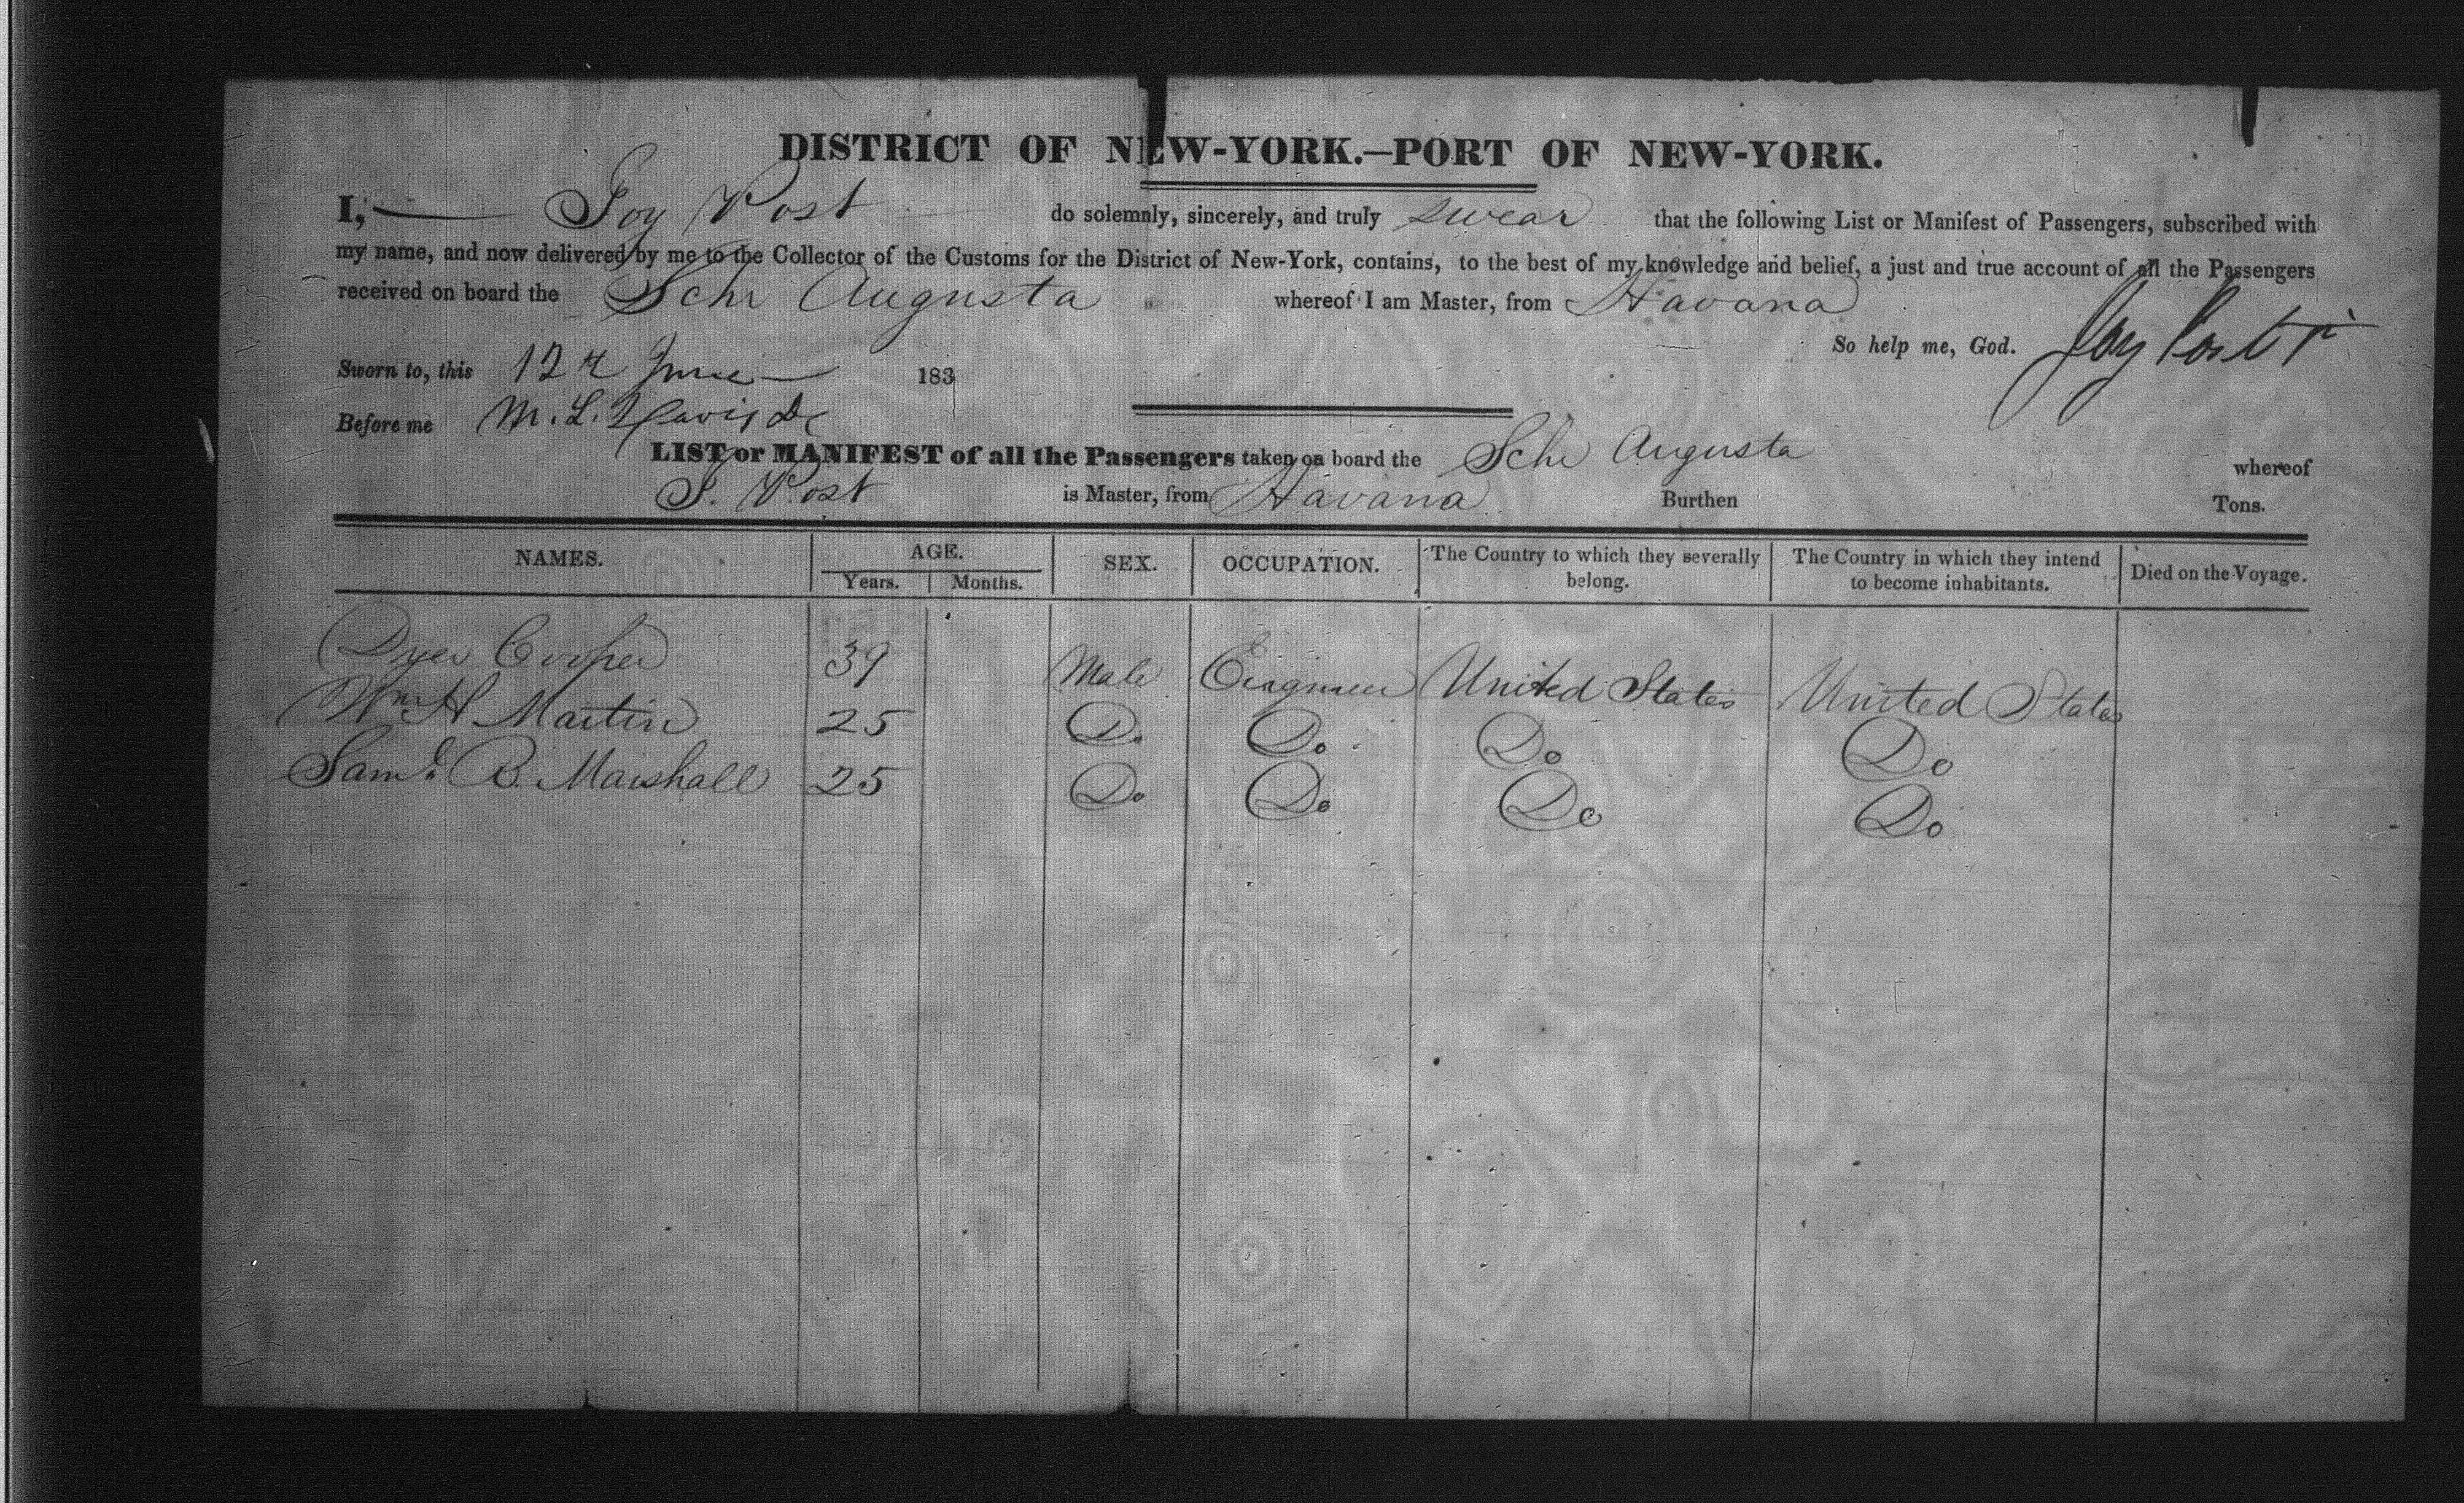 DISTRICT OF NEW-YORK.—PORT OF NEW-YORK.
I, Joy Post do solemnly, sincerely, and truly swear that the following List or Manifest of Passengers, subscribed with
my name, and now delivered by me to the Collector of the Customs for the District of New-York, contains, to the best of my knowledge and belief, a just and true account of all the Passengers
received on board the Schr Augusta whereof I am Master, from Havana
So help me, God. Joy Post
Sworn to, this 12th June 183
Before me M. L. Davis
LIST or MANIFEST of all the Passengers taken on board the Schr Augusta whereof
J. Post is Master, from Havana Burthen Tons.
NAMES. AGE. SEX. OCCUPATION. The Country to which they severally belong. The Country in which they intend to become inhabitants. Died on the Voyage.
Years. Months.
Dyer Cooper 39 Male Engineer United States United States
Wm H Martin 25 Do Do Do Do
Saml B. Marshall 25 Do Do Do Do